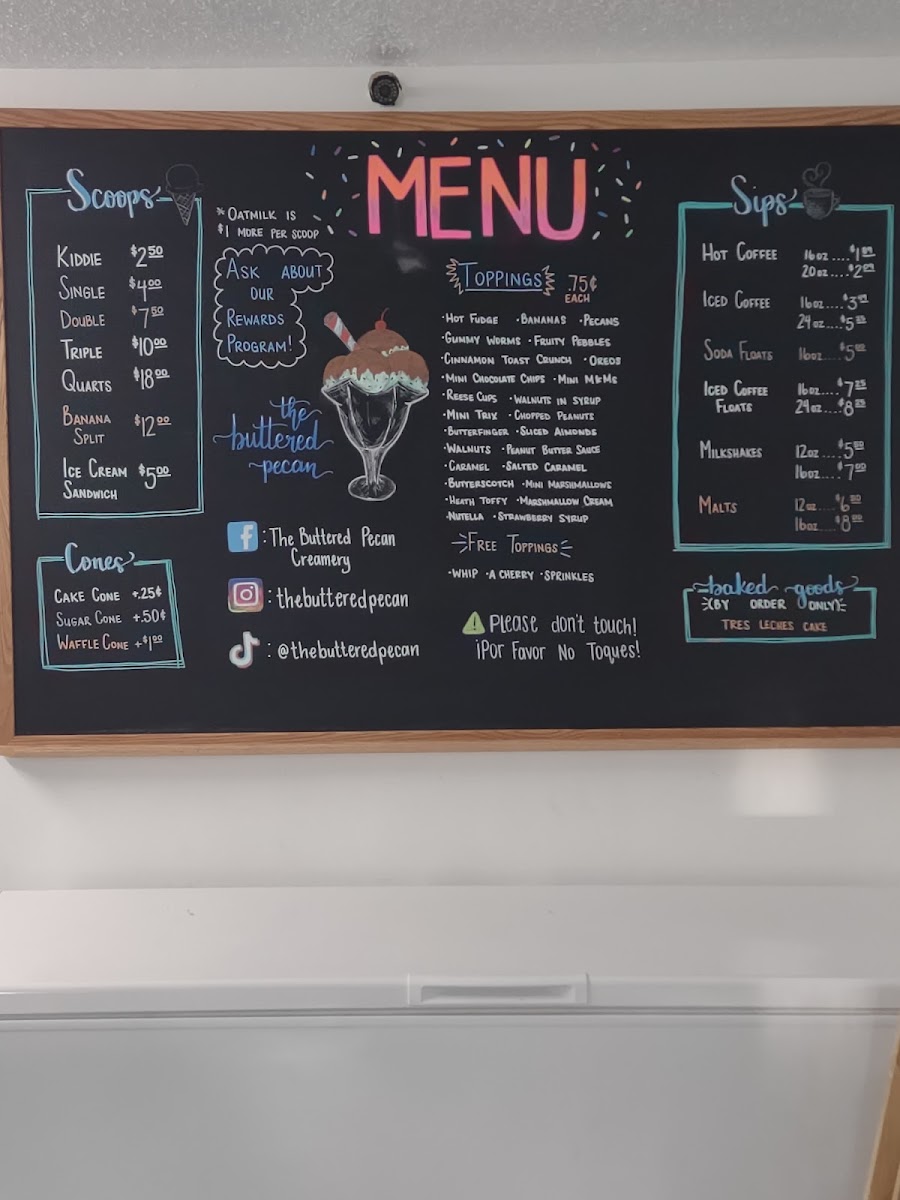 MENU
Scoops
KIDDIE $2.50
SINGLE $4.00
DOUBLE $7.50
TRIPLE $10.00
QUARTS $18.00
BANANA
SPLIT $12.00
ICE CREAM $5.00
SANDWICH
Cones
CAKE CONE +.25¢
SUGAR CONE +.50¢
WAFFLE CONE +$1.00
*OATMILK IS
$1 MORE PER SCOOP
ASK ABOUT
OUR
REWARDS
PROGRAM!
the
buttered
pecan
f : The Buttered Pecan
Creamery
: thebutteredpecan
: @thebutteredpecan
TOPPINGS .75¢
EACH
·HOT FUDGE ·BANANAS ·PECANS
·GUMMY WORMS ·FRUITY PEBBLES
·CINNAMON TOAST CRUNCH ·OREOS
·MINI CHOCOLATE CHIPS ·MINI M&MS
·REESE CUPS ·WALNUTS IN SYRUP
·MINI TRIX ·CHOPPED PEANUTS
·BUTTERFINGER ·SLICED ALMONDS
·WALNUTS ·PEANUT BUTTER SAUCE
·CARAMEL ·SALTED CARAMEL
·BUTTERSCOTCH ·MINI MARSHMALLOWS
·HEATH TOFFY ·MARSHMALLOW CREAM
·NUTELLA ·STRAWBERRY SYRUP
FREE TOPPINGS
·WHIP ·A CHERRY ·SPRINKLES
Please don't touch!
¡Por Favor No Toques!
Sips
HOT COFFEE 16oz....
20oz...
ICED COFFEE 16oz....
24oz....
SODA FLOATS 16oz....
ICED COFFEE 16oz....$7.25
FLOATS 24oz....$8.25
MILKSHAKES 12oz....$5.50
16oz....$7.00
MALTS 12oz....$6.50
16oz....$8.00
baked goods
(BY ORDER ONLY)
TRES LECHES CAKE